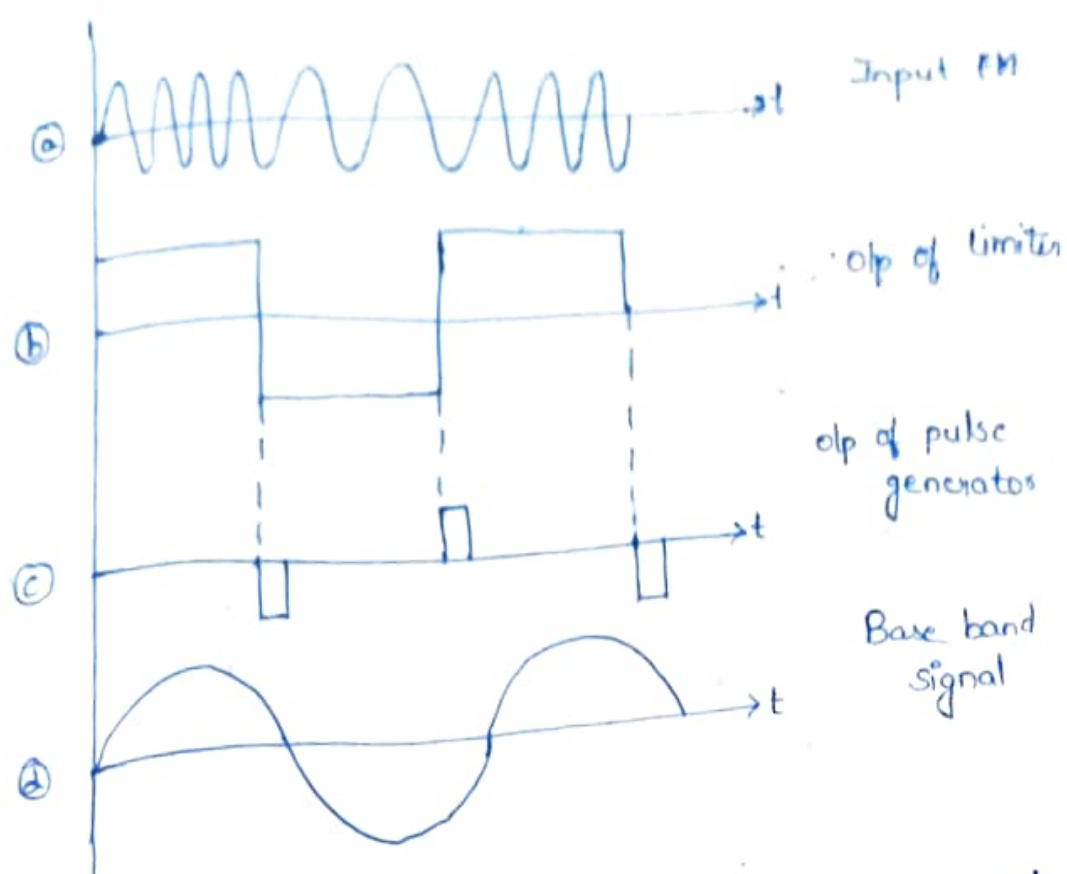 Input FM
t
ⓐ
o/p of limiter
t
ⓑ
o/p of pulse
generator
t
ⓒ
Base band
signal
t
ⓓ